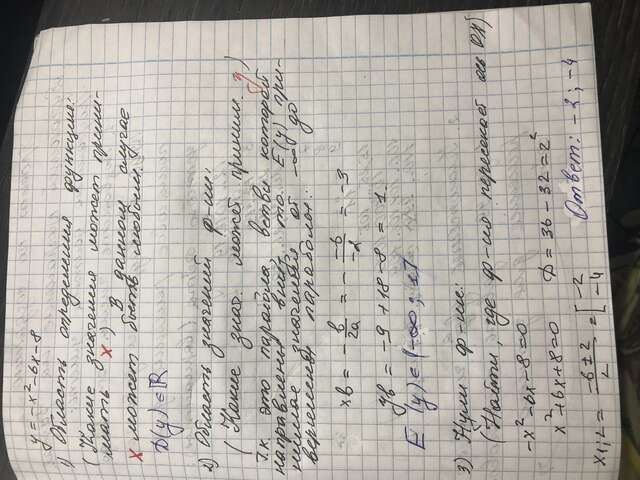 y = -x² - 6x - 8
1) Область определения функции:
(Какие значения может прини-
мать x) В данном случае
x может быть любым.
D(y) ∈ ℝ
2) Область значений ф-ии:
(Какие знач. может приним. y)
Т.к. это парабола, ветви которой
направлены вниз, то E(y) при-
нимае значения от -∞ до
вершины параболы:
xв = -b/2a = - -6/-2 = -3
yв = -9 + 18 - 8 = 1.
E (y) ∈ (-∞; 1]
3) Нули ф-ии:
(Найти, где ф-ия пересекает ось OX)
-x² - 6x - 8 = 0
x² + 6x + 8 = 0 D = 36 - 32 = 2²
x1;2 = -6 ± 2/2 = [-2 -4 Ответ: -2; -4